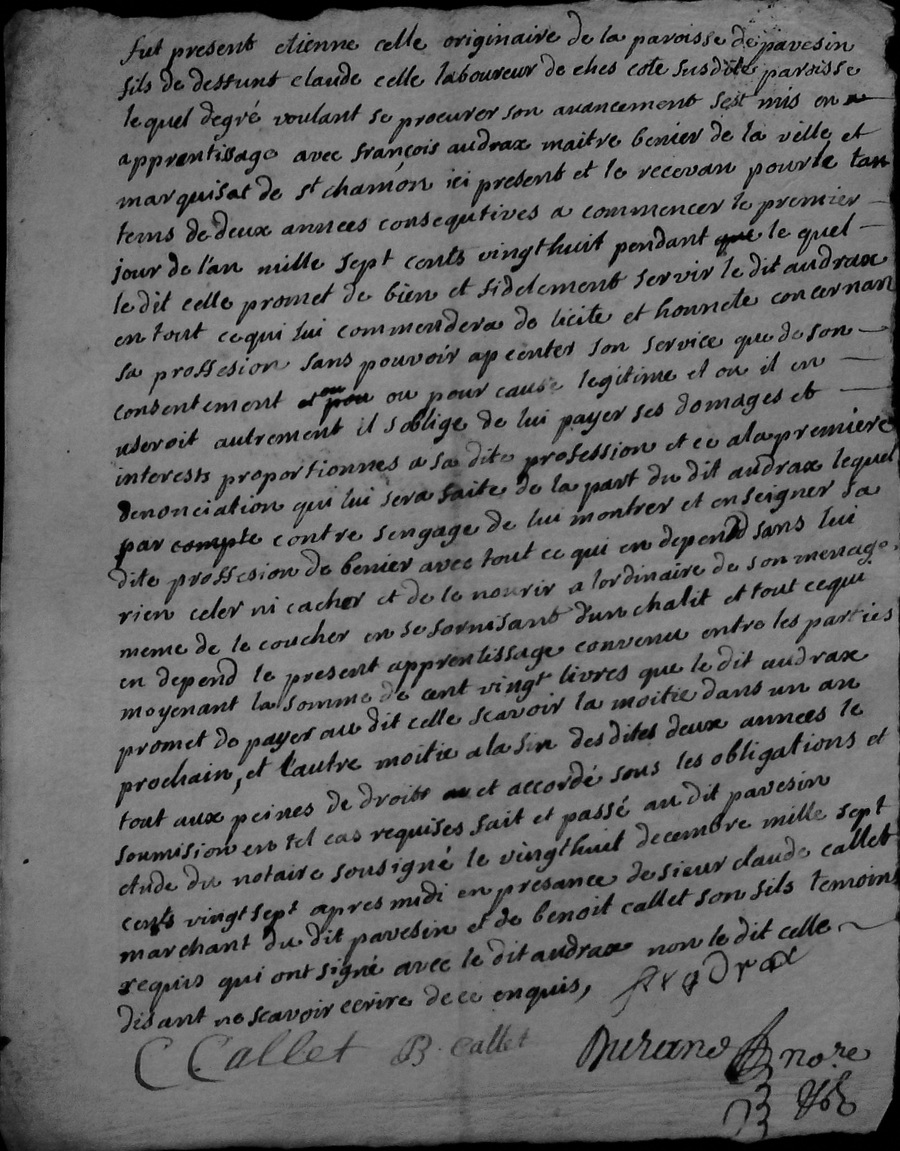 fut present etienne celle originaire de la paroisse de pavesin
fils de deffunt claude celle laboureur de ches cote susdite paroisse
lequel degré voulant se procurer son avancement sest mis en
apprentissage avec françois audrax maitre benier de la ville et
marquisat de st chamon ici present et le recevan pour le tan
tems de deux annees consequtives a commencer le premier
jour de l'an mille sept cents vingthuit pendant que le quel
le dit celle promet de bien et fidelement servir le dit audrax
en tout ce qui lui commendera de licite et honnete concernan
sa proffesion sans pouvoir apcenter son service que de son
consentement ou pour cause legitime et ou il en
useroit autrement il soblige de lui payer ses domages et
interests proportionnes a sa dite profession et ce a la premiere
denonciation qui lui sera faite de la part du dit audrax lequel
par compte contre sengage de lui montrer et enseigner sa
dite proffesion de benier avec tout ce qui en depend sans lui
rien celer ni cacher et de le nourir a lordinaire de son menage
meme de le coucher en se fornisant dun chalit et tout cequi
en depend le present apprentissage convenu entre les parties
moyenant la somme de cent vingt livres que le dit audrax
promet de payer au dit celle scavoir la moitie dans un an
prochain, et lautre moitie a la fin des dites deux annees le
tout aux peines de droits et accordé sous les obligations et
soumision en tel cas requises fait et passé au dit pavesin
etude du notaire sousigné le vingthuit decembre mille sept
cents vingt sept apres midi en presance de sieur claude callet
marchant du dit pavesin et de benoit callet son fils temoins
requis qui ont signé avec le dit audrax non le dit celle
disant ne scavoir ecrire de ce enquis, audrax
C Callet B. Callet Durand no.re